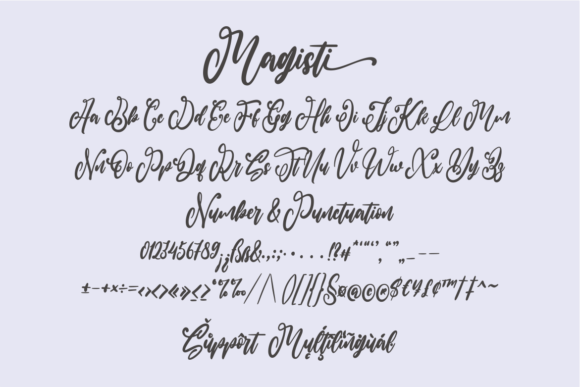 Magisti
Aa Bb Cc Dd Ee Ff Gg Hh Ii Jj Kk Ll Mm
Nn Oo Pp Qq Rr Ss Tt Uu Vv Ww Xx Yy Zz
Number & Punctuation
0123456789¡¿ßß&.,:;·•....!?#^“‘“‘’,“”„_——
±-+×÷=<><>«»≤≥°%‰/|\()[]{}§¤@©®$€¥£¢™†‡^~
Šůppôrt Mųļţīlīñġùáĺ